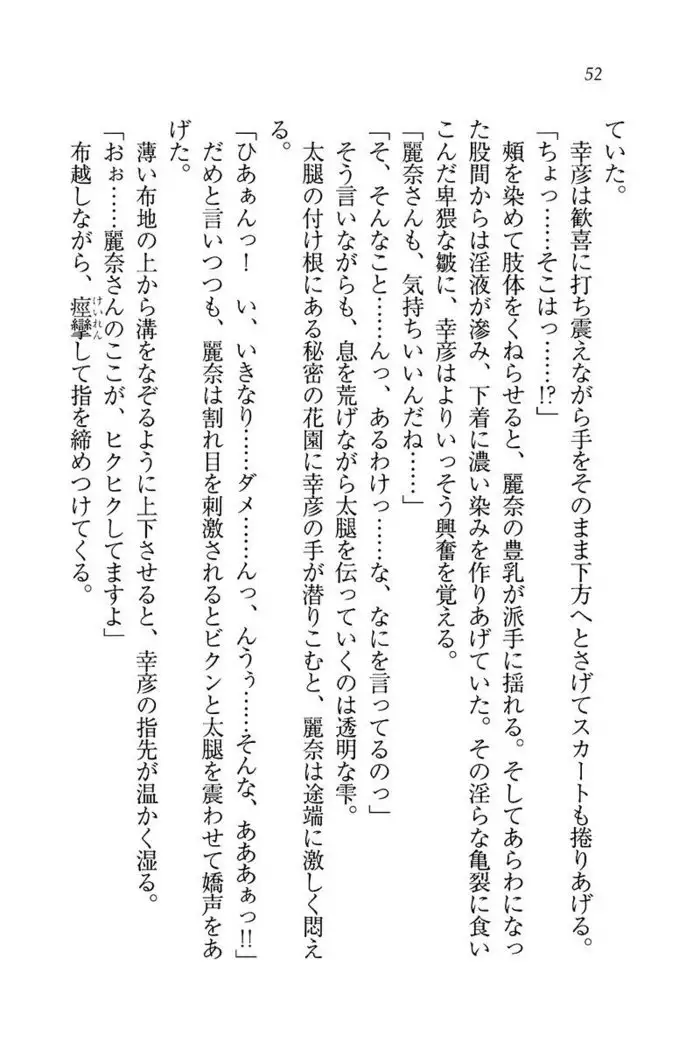 52
ていた。
幸彦は歓喜に打ち震えながら手をそのまま下方へとさげてスカートも捲りあげる。
「ちょっ……そこはっ……!?」
頬を染めて肢体をくねらせると、麗奈の豊乳が派手に揺れる。そしてあらわになっ
た股間からは淫液が滲み、下着に濃い染みを作りあげていた。その淫らな亀裂に食い
こんだ卑猥な皺に、幸彦はよりいっそう興奮を覚える。
「麗奈さんも、気持ちいいんだね……」
「そ、そんなこと……んっ、あるわけっ……な、なにを言ってるのっ」
そう言いながらも、息を荒げながら太腿を伝っていくのは透明な雫。
太腿の付け根にある秘密の花園に幸彦の手が潜りこむと、麗奈は途端に激しく悶え
る。
「ひあぁんっ！　い、いきなり……ダメ……んっ、んうぅ……そんな、あああぁっ!!」
だめと言いつつも、麗奈は割れ目を刺激されるとビクンと太腿を震わせて嬌声をあ
げた。
薄い布地の上から溝をなぞるように上下させると、幸彦の指先が温かく湿る。
「おぉ……麗奈さんのここが、ヒクヒクしてますよ」
布越しながら、痙攣けいれんして指を締めつけてくる。